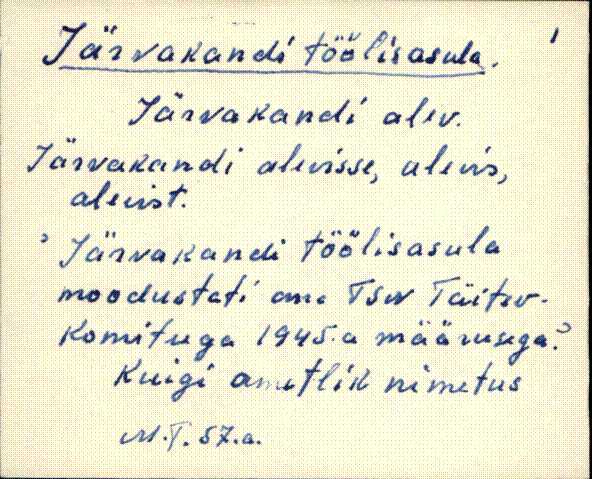 1
Järvakandi töölisasula.
Järvakandi alev.
Järvakandi alevisse, alevis,
alevist.
Järvakandi töölisasula
moodustati TSN Täitev-
Komiteega 1945.a määrusega.
Kuigi ametlik nimetus
M.T. 57.a.